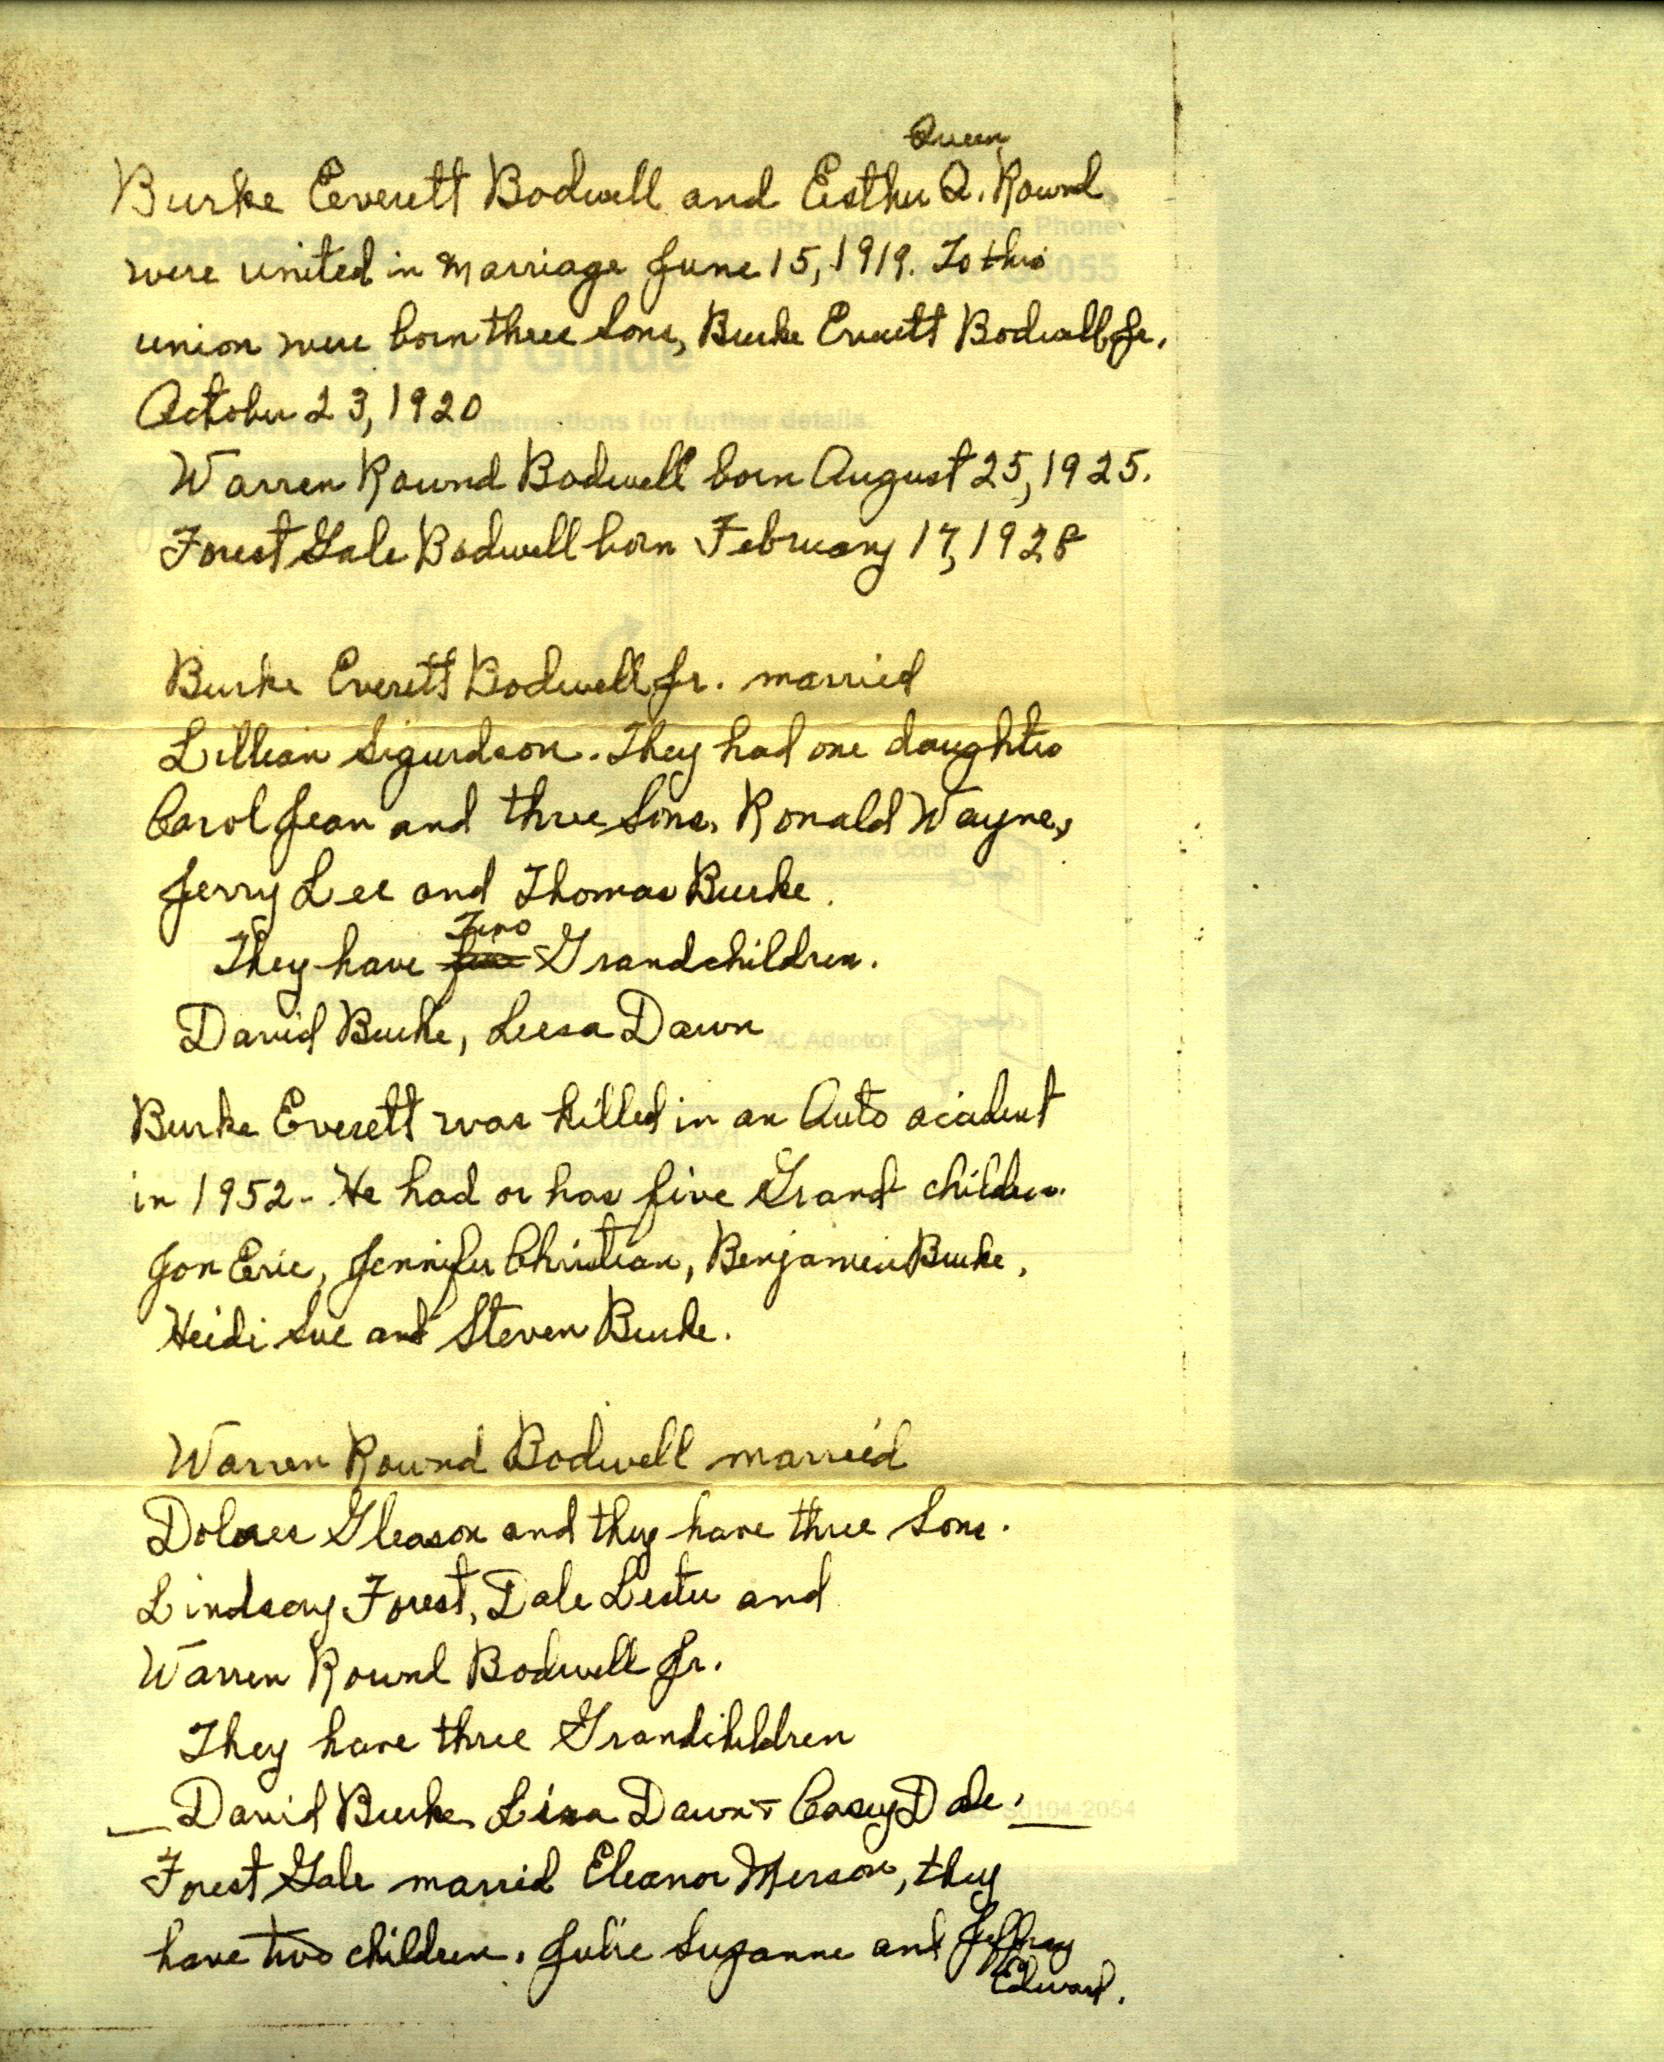 Queen
Burke Everett Bodwell and Esther Q. Round
were united in marriage June 15, 1919. To this
union were born three sons, Burke Everett Bodwell Jr.
October 23, 1920
Warren Round Bodwell born August 25, 1925.
Forest Gale Bodwell born February 17, 1928
Burke Everett Bodwell Jr. married
Lillian Sigurdson. They had one daughter
Carol Jean and three sons, Ronald Wayne,
Jerry Lee and Thomas Burke.
Two
They have five Grandchildren.
David Burke, Leesa Dawn
Burke Everett was killed in an Auto acident
in 1952 - He had or has five Grand children.
Jon Eric, Jennifer Christian, Benjamin Burke,
Heidi Sue and Steven Burke.
Warren Round Bodwell married
Dolores Gleason and they have three sons.
Lindsay Forest, Dale Lester and
Warren Round Bodwell Jr.
They have three Grandchildren
David Burke, Lisa Dawn & Casey Dale.
Forest Gale married Eleanor Merson, they
have two children. Julie Suzanne and Jeffrey
Edward.
Panasonic
5.8 GHz Digital Cordless Phone
Quick Set-Up Guide
Operating Instructions for further details.
Telephone Line Cord
AC Adaptor